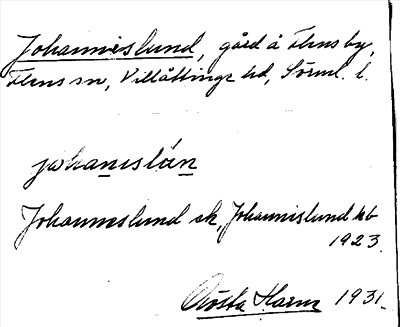 Johannislund, gård å Flens by,
Flens sn, Villåttinge hd, Sörml. l.
johanislún
Johanneslund sk, Johannislund kb
1923.
Gösta Harm 1931.